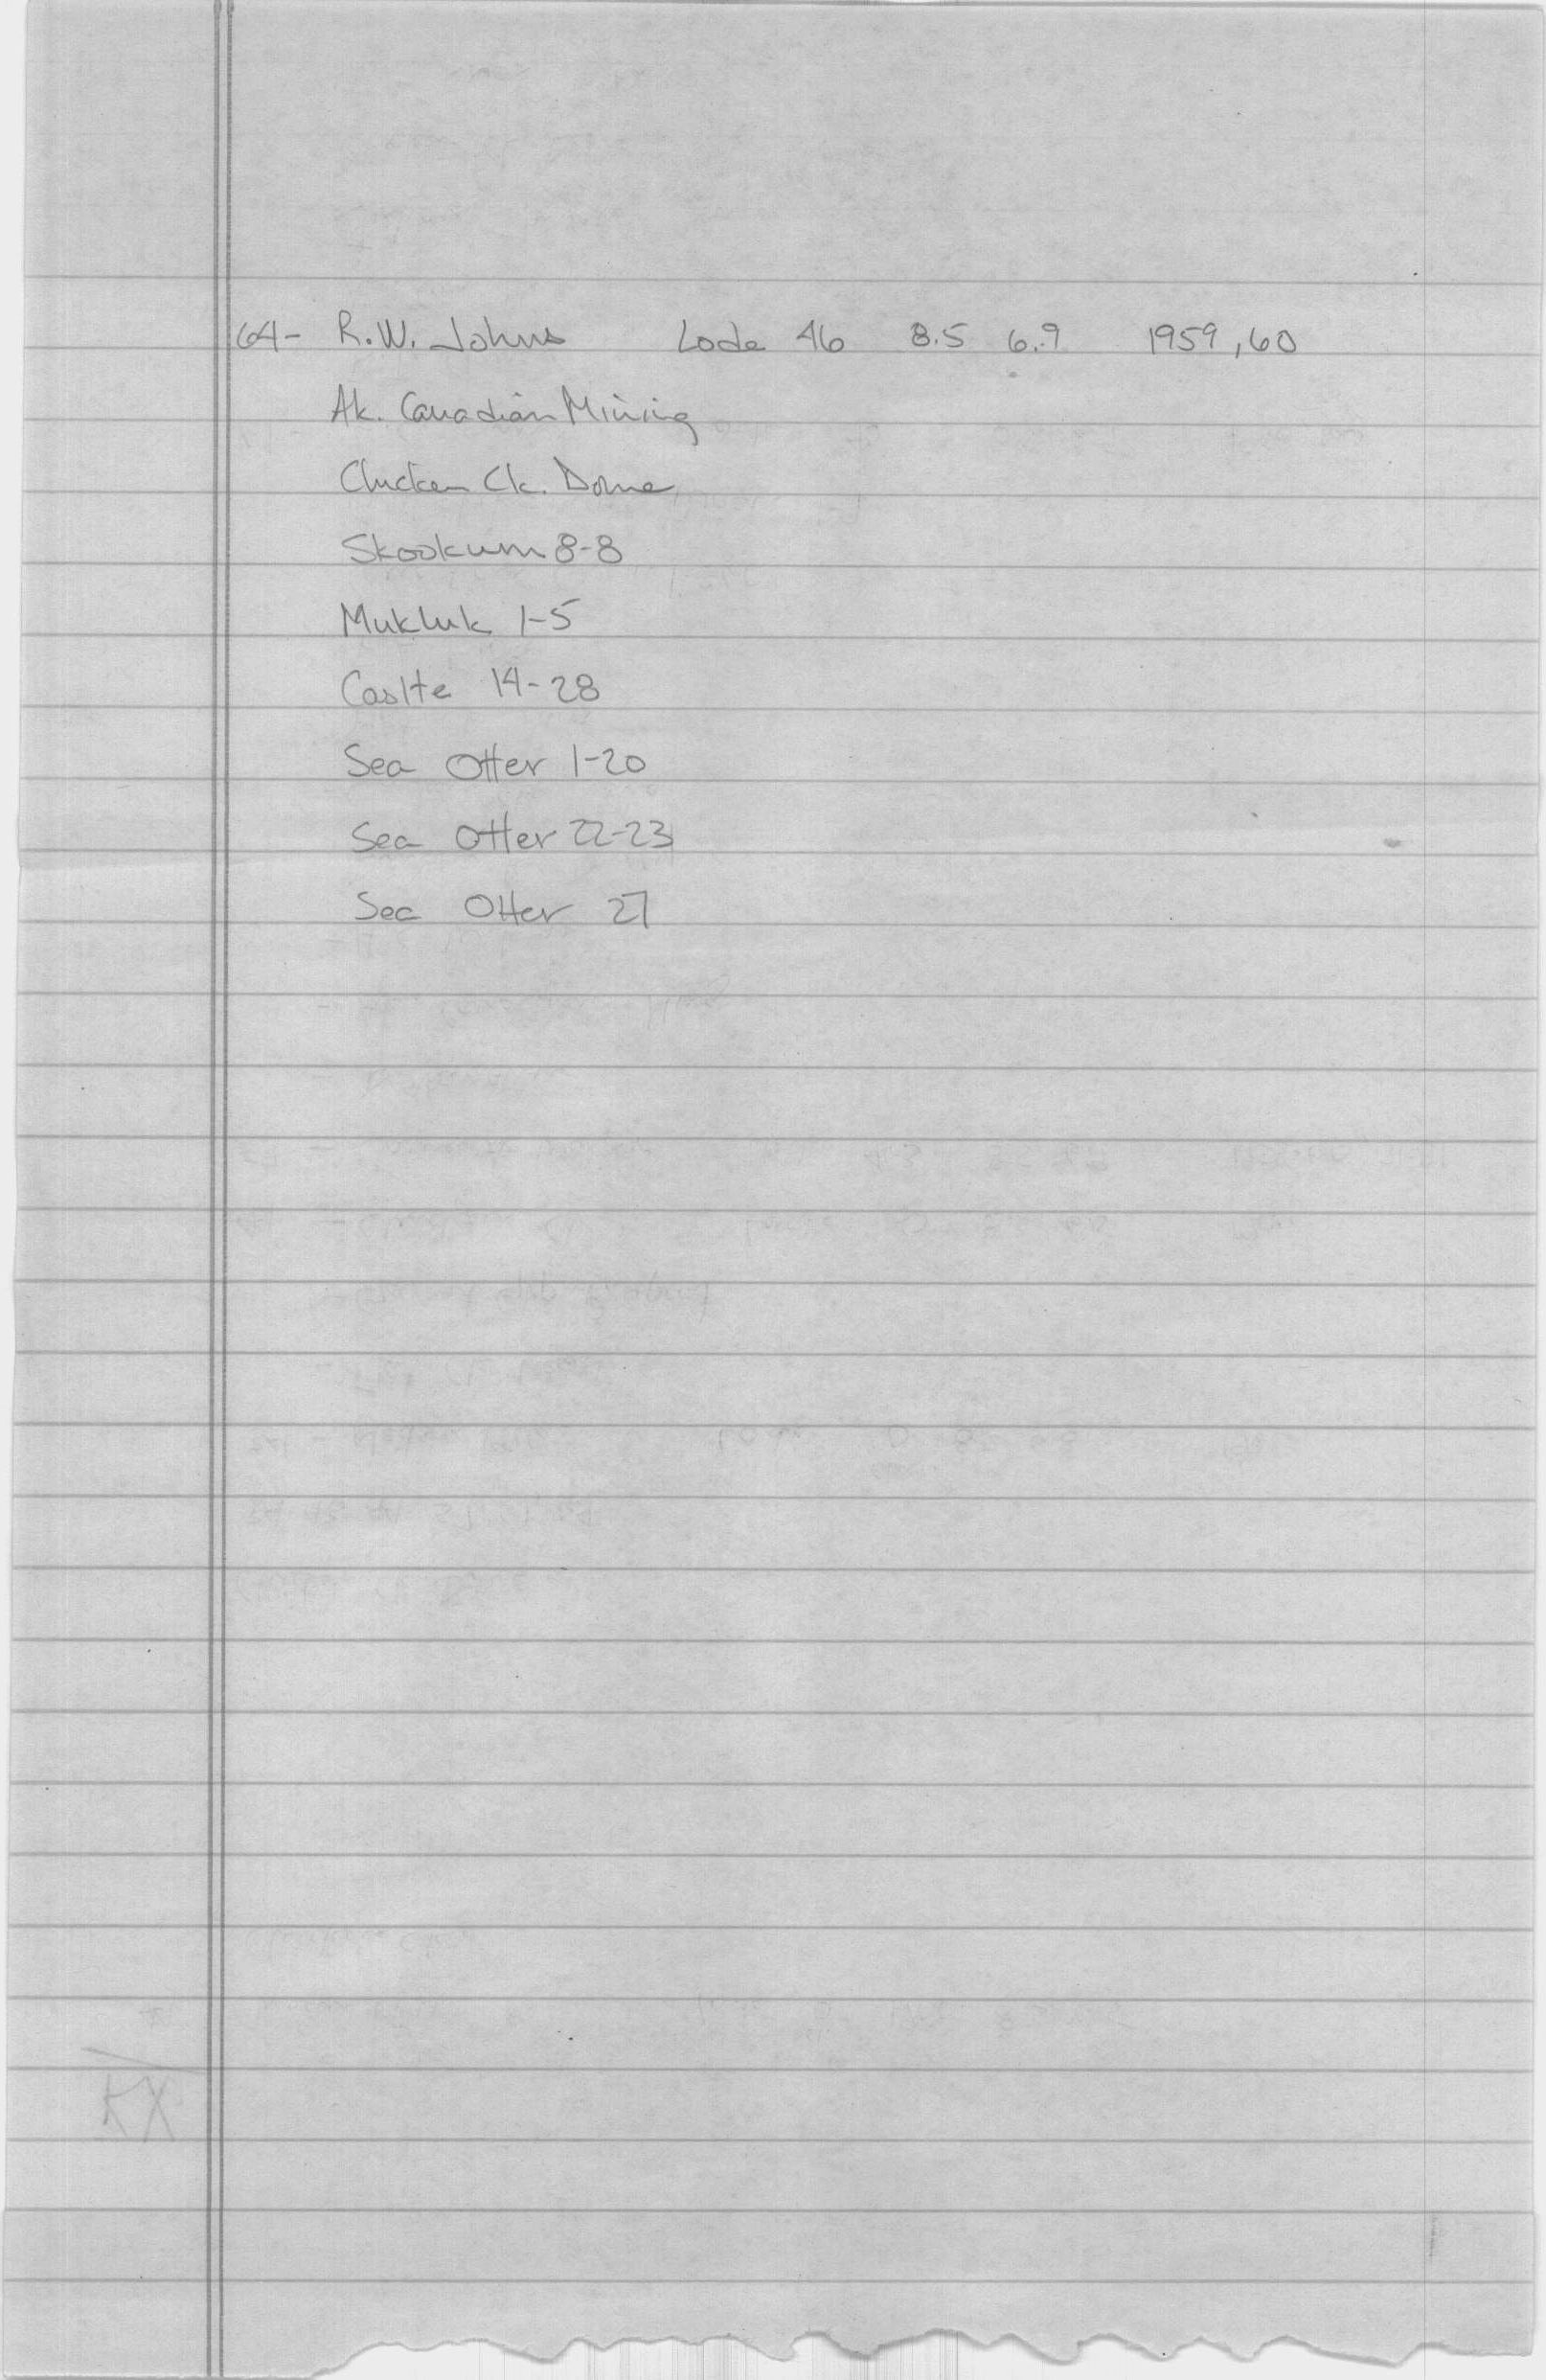 64- R.W. Johns Lode 46 8.5 6.9 1959,60
Ak. Canadian Mining
Chicken Ck. Dome
Skookum 8-8
Mukluk 1-5
Caslte 14-28
Sea Otter 1-20
Sea Otter 22-23
Sea Otter 27